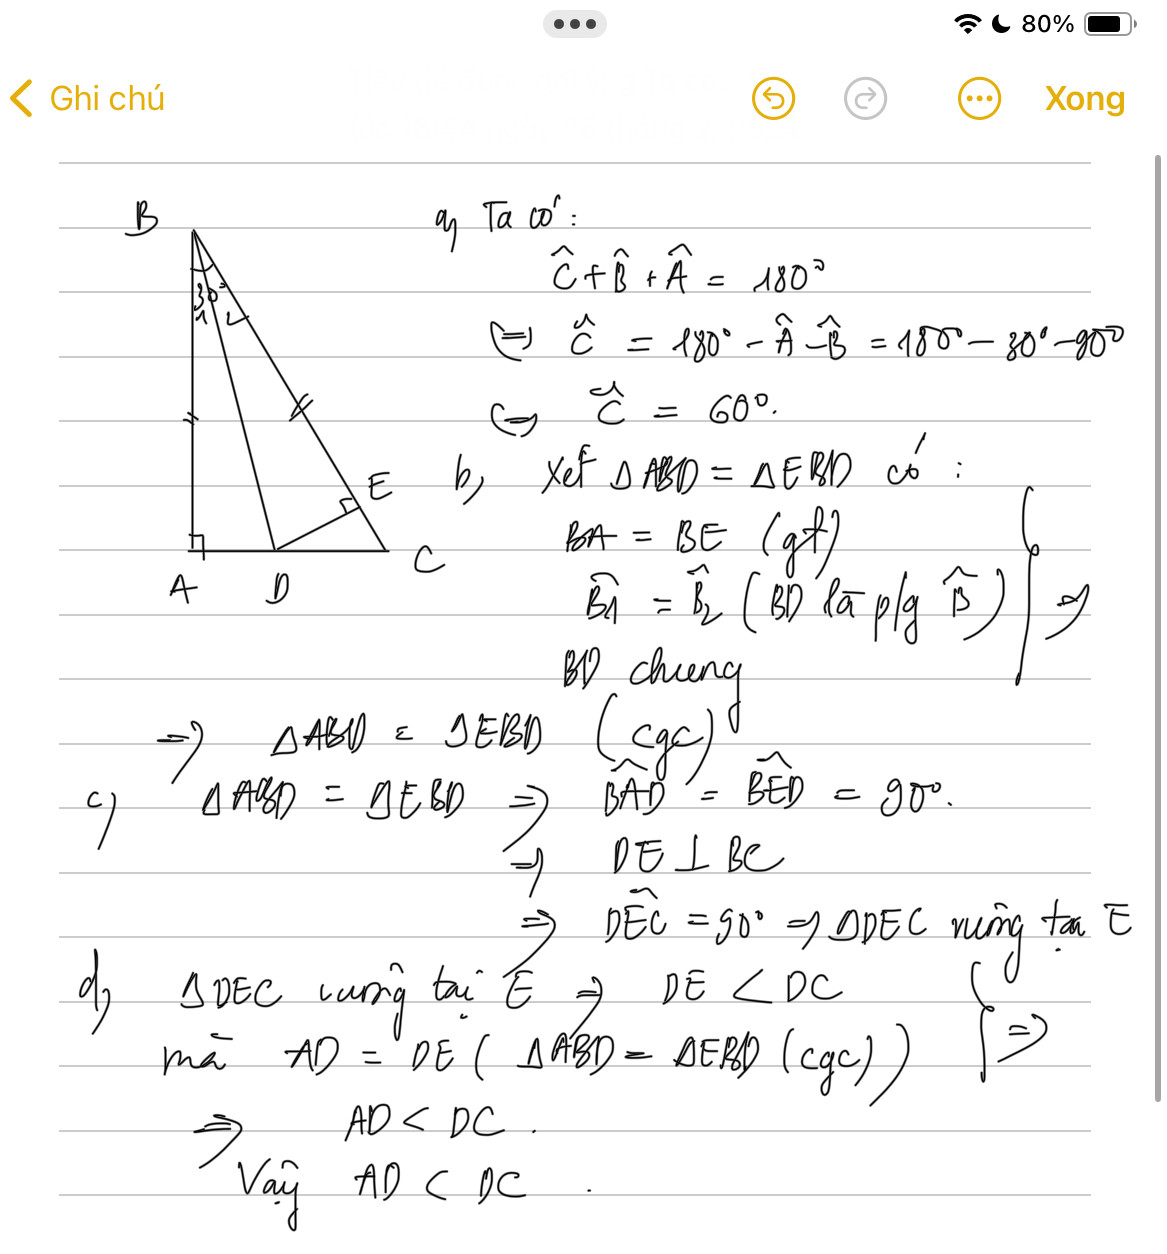 80%
Ghi chú
Xong
B
30°
1 2
E
A D C
a, Ta có:
Ĉ + B̂ + Â = 180°
(=) Ĉ = 180° - Â - B̂ = 180° - 30° - 90°
(=) Ĉ = 60°.
b, Xét ΔABD = ΔEBD có :
BA = BE (gt)
B̂1 = B̂2 (BD là p/g B̂) =>
BD chung
=> ΔABD = ΔEBD (cgc)
c) ΔABD = ΔEBD => BAD̂ = BED̂ = 90°.
=> DE ⊥ BC
=> DEĈ = 90° => ΔDEC vuông tại E
d, ΔDEC vuông tại E => DE < DC
mà AD = DE ( ΔABD = ΔEBD (cgc)) =>
=> AD < DC .
Vậy AD < DC .